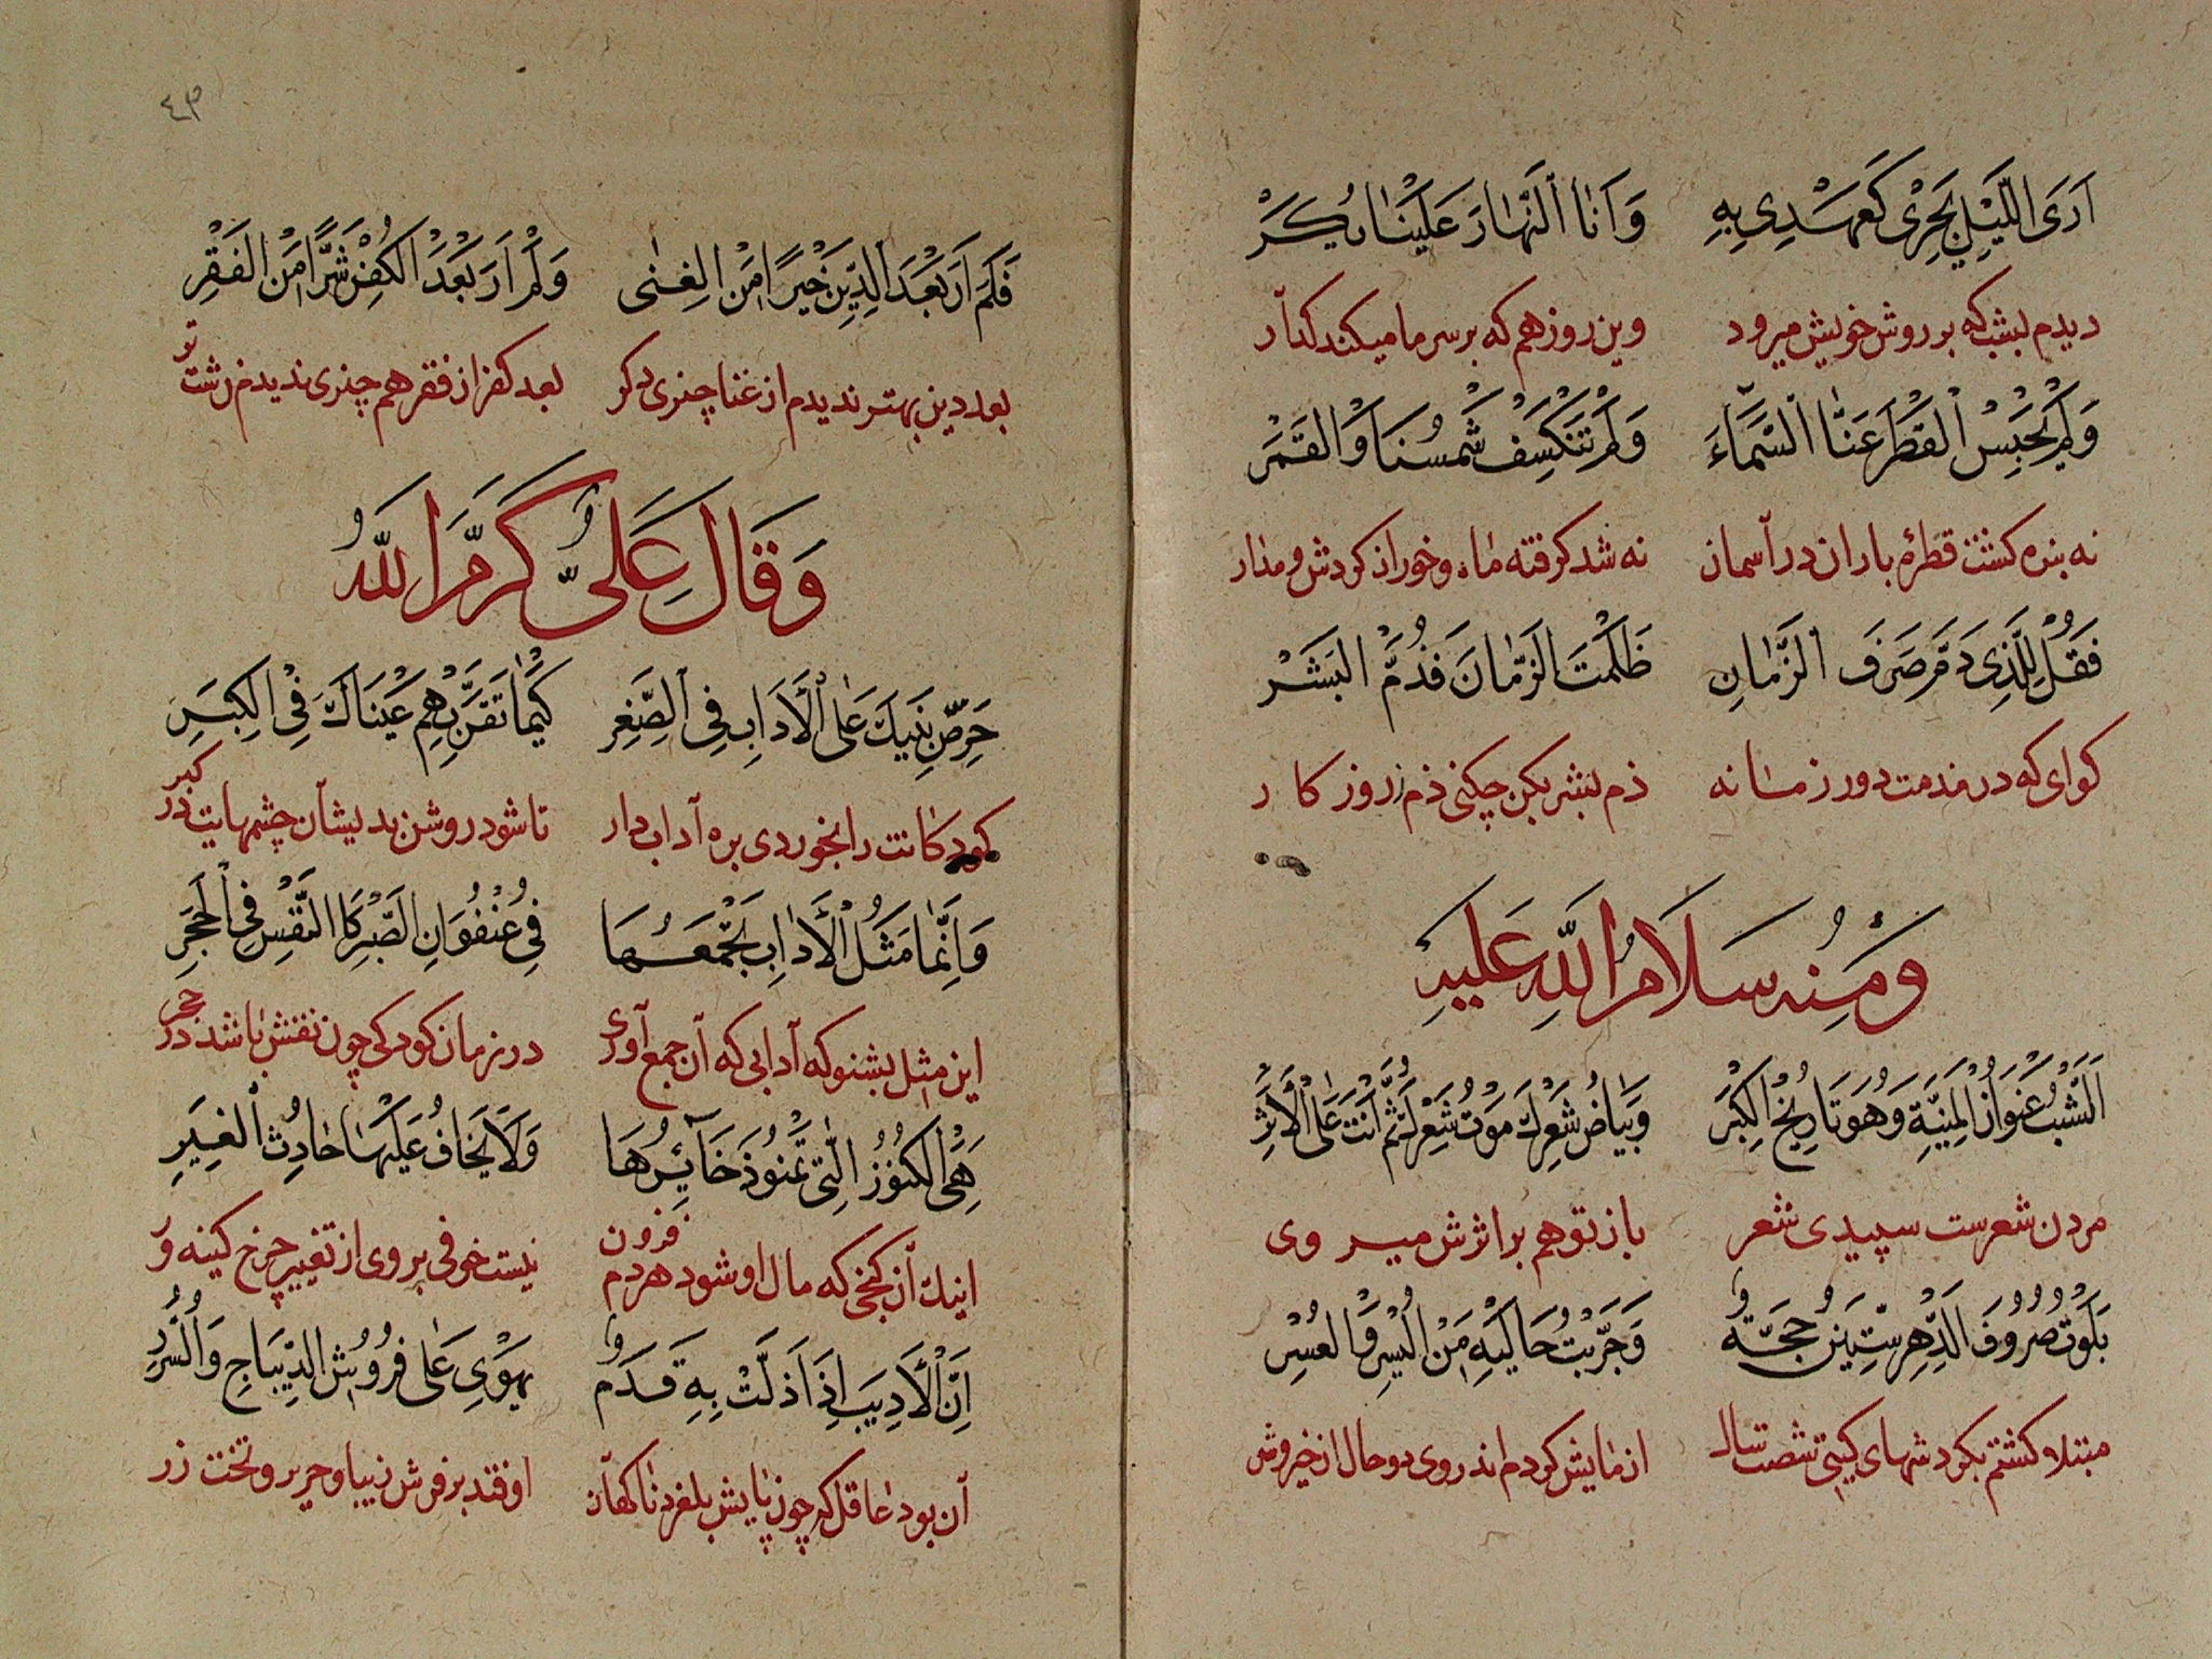 اَرَى اللَّيْلِ يَجْرِى كَعَهْدِى بِهِ وَاَنَا النَّهَارَ عَلَيْنَا يَكَرْ
ديدم لبشب كه بر روش خويش ميرود وين روز هم كه بر سر ما ميكند كدآر
وَلَمْ يَحْبِسْ الْقَطْرَ عَنَّا السَّمَآءَ وَلَمْ تَنْكَسِفْ شَمْسُنَا وَالْقَمَرْ
نه بنده كشت قطرهٔ باران در آسمان نه شد كرفته ماه وخور از كردش ومدار
فَقُلْ لِلَّذِى ذَمَّ صَرْفَ الزَّمَانِ ظَلَمْتَ الزَّمَانَ فَذُمَّ الْبَشَرْ
كو اى كه در مذمت دور زمانه ذم بشر بكن چكنى ذم روزكار
وَمِنْهُ سَلَامُ اللهِ عَلَيْهِ
اَلشَّيْبُ عُنْوَانُ الْمَنِيَّةِ وَهُوَ تَارِيخُ الْكِبَرْ وَبَيَاضُ شَعْرِكَ مَوْتُ شَعْرِكَ ثُمَّ اَنْتَ عَلَى الْاَثَرْ
مردن شعرست سپيدى شعر باز تو هم بر اثرش ميروى
بَلَوْتُ صُرُوفَ الدَّهْرِ سِتِّينَ حُجَّةً وَجَرَّبْتُ حَالَيْهِ مِنْ الْيُسْرِ وَالْعُسْرِ
مبتلا كشتم بكردشهاى كيتى شصت سال ازمايش كردم اندر وى دو حال از خير وشر
٤٣
فَلَمْ اَرَ بَعْدَ الدِّينِ خَيْرًا مِنَ الْغِنٰى وَلَمْ اَرَ بَعْدَ الْكُفْرِ شَرًّا مِنَ الْفَقْرِ
بعد دين بهتر نديدم از غنا چيزى دكر بعد كفر از فقر هم چيزى نديدم زشت تر
وَقَالَ عَلِىٌّ كَرَّمَ اللهُ
حَرِّصْ بَنِيكَ عَلَى الْاَدَابِ فِى الصِّغَرِ كَيْمَا تَقَرَّ بِهِمْ عَيْنَاكَ فِى الْكِبَرِ
كودكانت را بخوردى بره آداب دار تا شود روشن بديشان چشمهايت در كبر
وَاِنَّمَا مَثَلُ الْاَدَابِ تَجْمَعُهَا فِى عُنْفُوَانِ الصَّبْرِ كَا النَّقْشِ فِى الْحَجَرِ
اين مثل بشنو كه آدابى كه آن جمع آورى در زمان كودكى چون نقش باشد در حجر
هِىَ الْكُنُوزُ الَّتِى تَمْنُو ذَخَآئِرُهَا وَلَا يَخَافُ عَلَيْهَا حَادِثُ الْغِيَرِ
اينك آن كنجى كه مال او شود هر دم فزون نيست خوفى بر وى از تغيير چرخ كينه ور
اِنَّ الْاَدِيبَ اِذَا ذَلَّتْ بِهِ قَدَمٌ يَهْوَى عَلَى فُرُوشِ الدِّيبَاجِ وَالسُّرُرِ
آن بود عاقل كه چون پايش بلغزد ناكهان اوفتد بر فرش زيبا وحرير وتخت زر